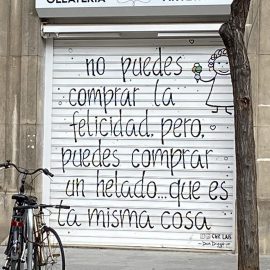 no puedes
comprar la
felicidad. pero,
puedes comprar
un helado... que es
ta misma cosa